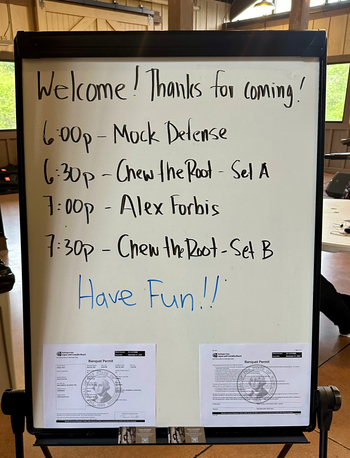 Welcome! Thanks for coming!
6:00p - Mock Defense
6:30p - Chew the Root - Set A
7:00p - Alex Forbis
7:30p - Chew the Root - Set B
Have Fun!!
Banquet Permit
Banquet Permit